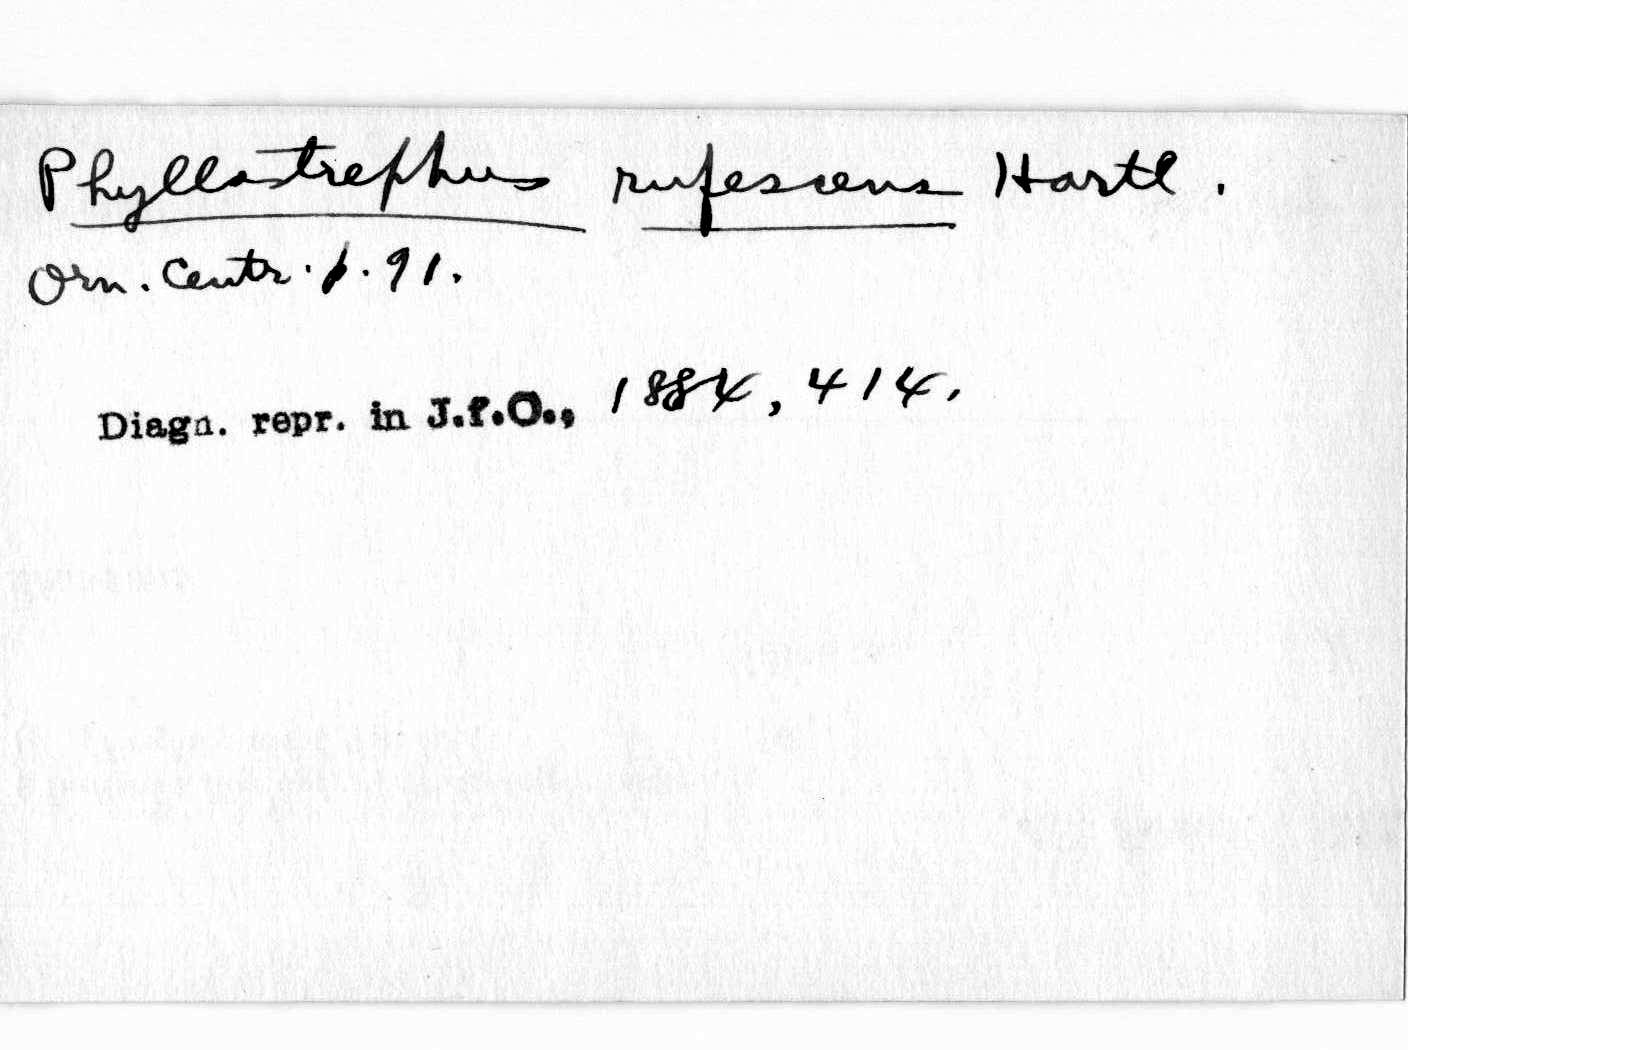 Phyllostrephus rufescens Hartl.
Orn. Centr. p. 91.
Diagn. repr. in J.f.O., 1884, 414.